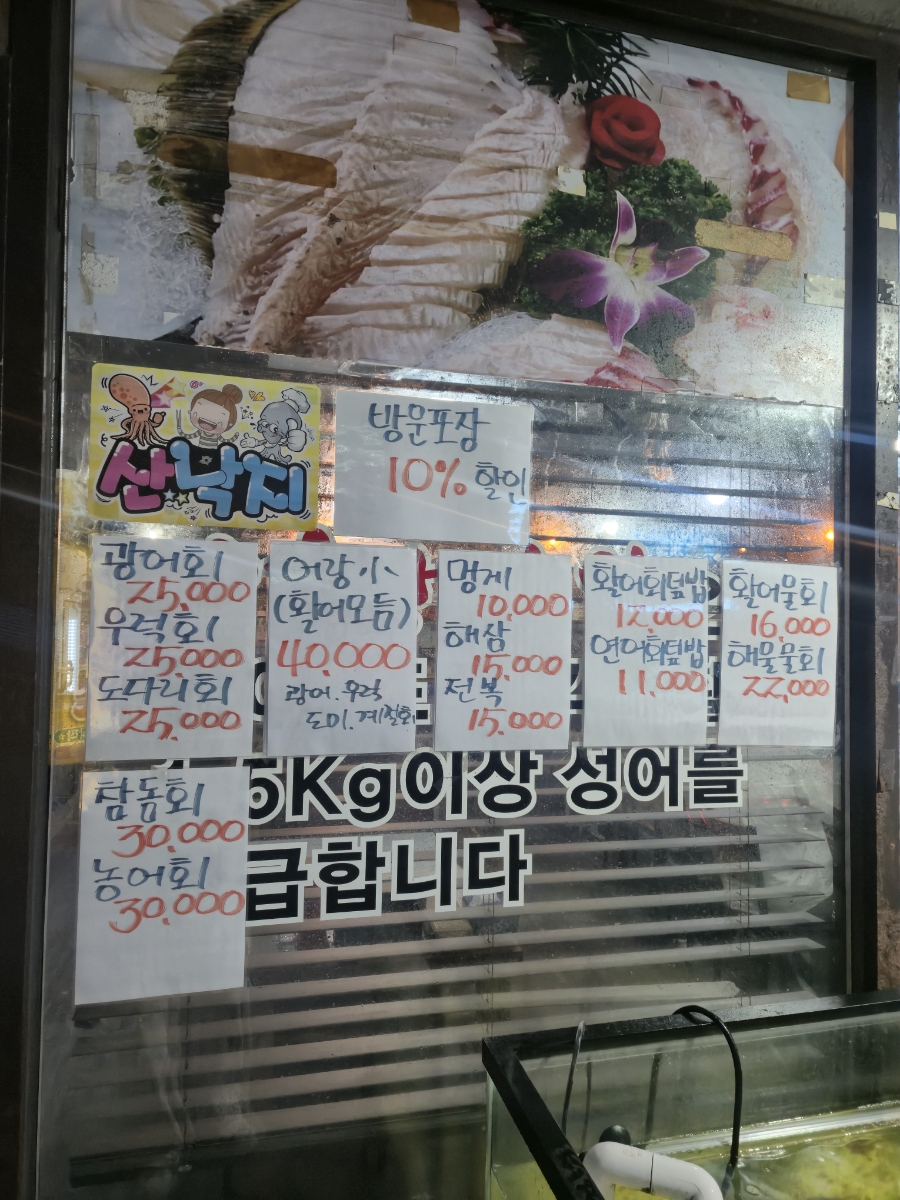 산낙지
방문포장
10% 할인
광어회
25,000
우럭회
25,000
도다리회
25,000
어랑小
(활어모듬)
40,000
광어.우럭
도미.계절회
멍게
10,000
해삼
15,000
전복
15,000
활어회덮밥
12,000
연어회덮밥
11,000
활어물회
16,000
해물물회
22,000
참돔회
30,000
농어회
30,000
5Kg이상 성어를
급합니다